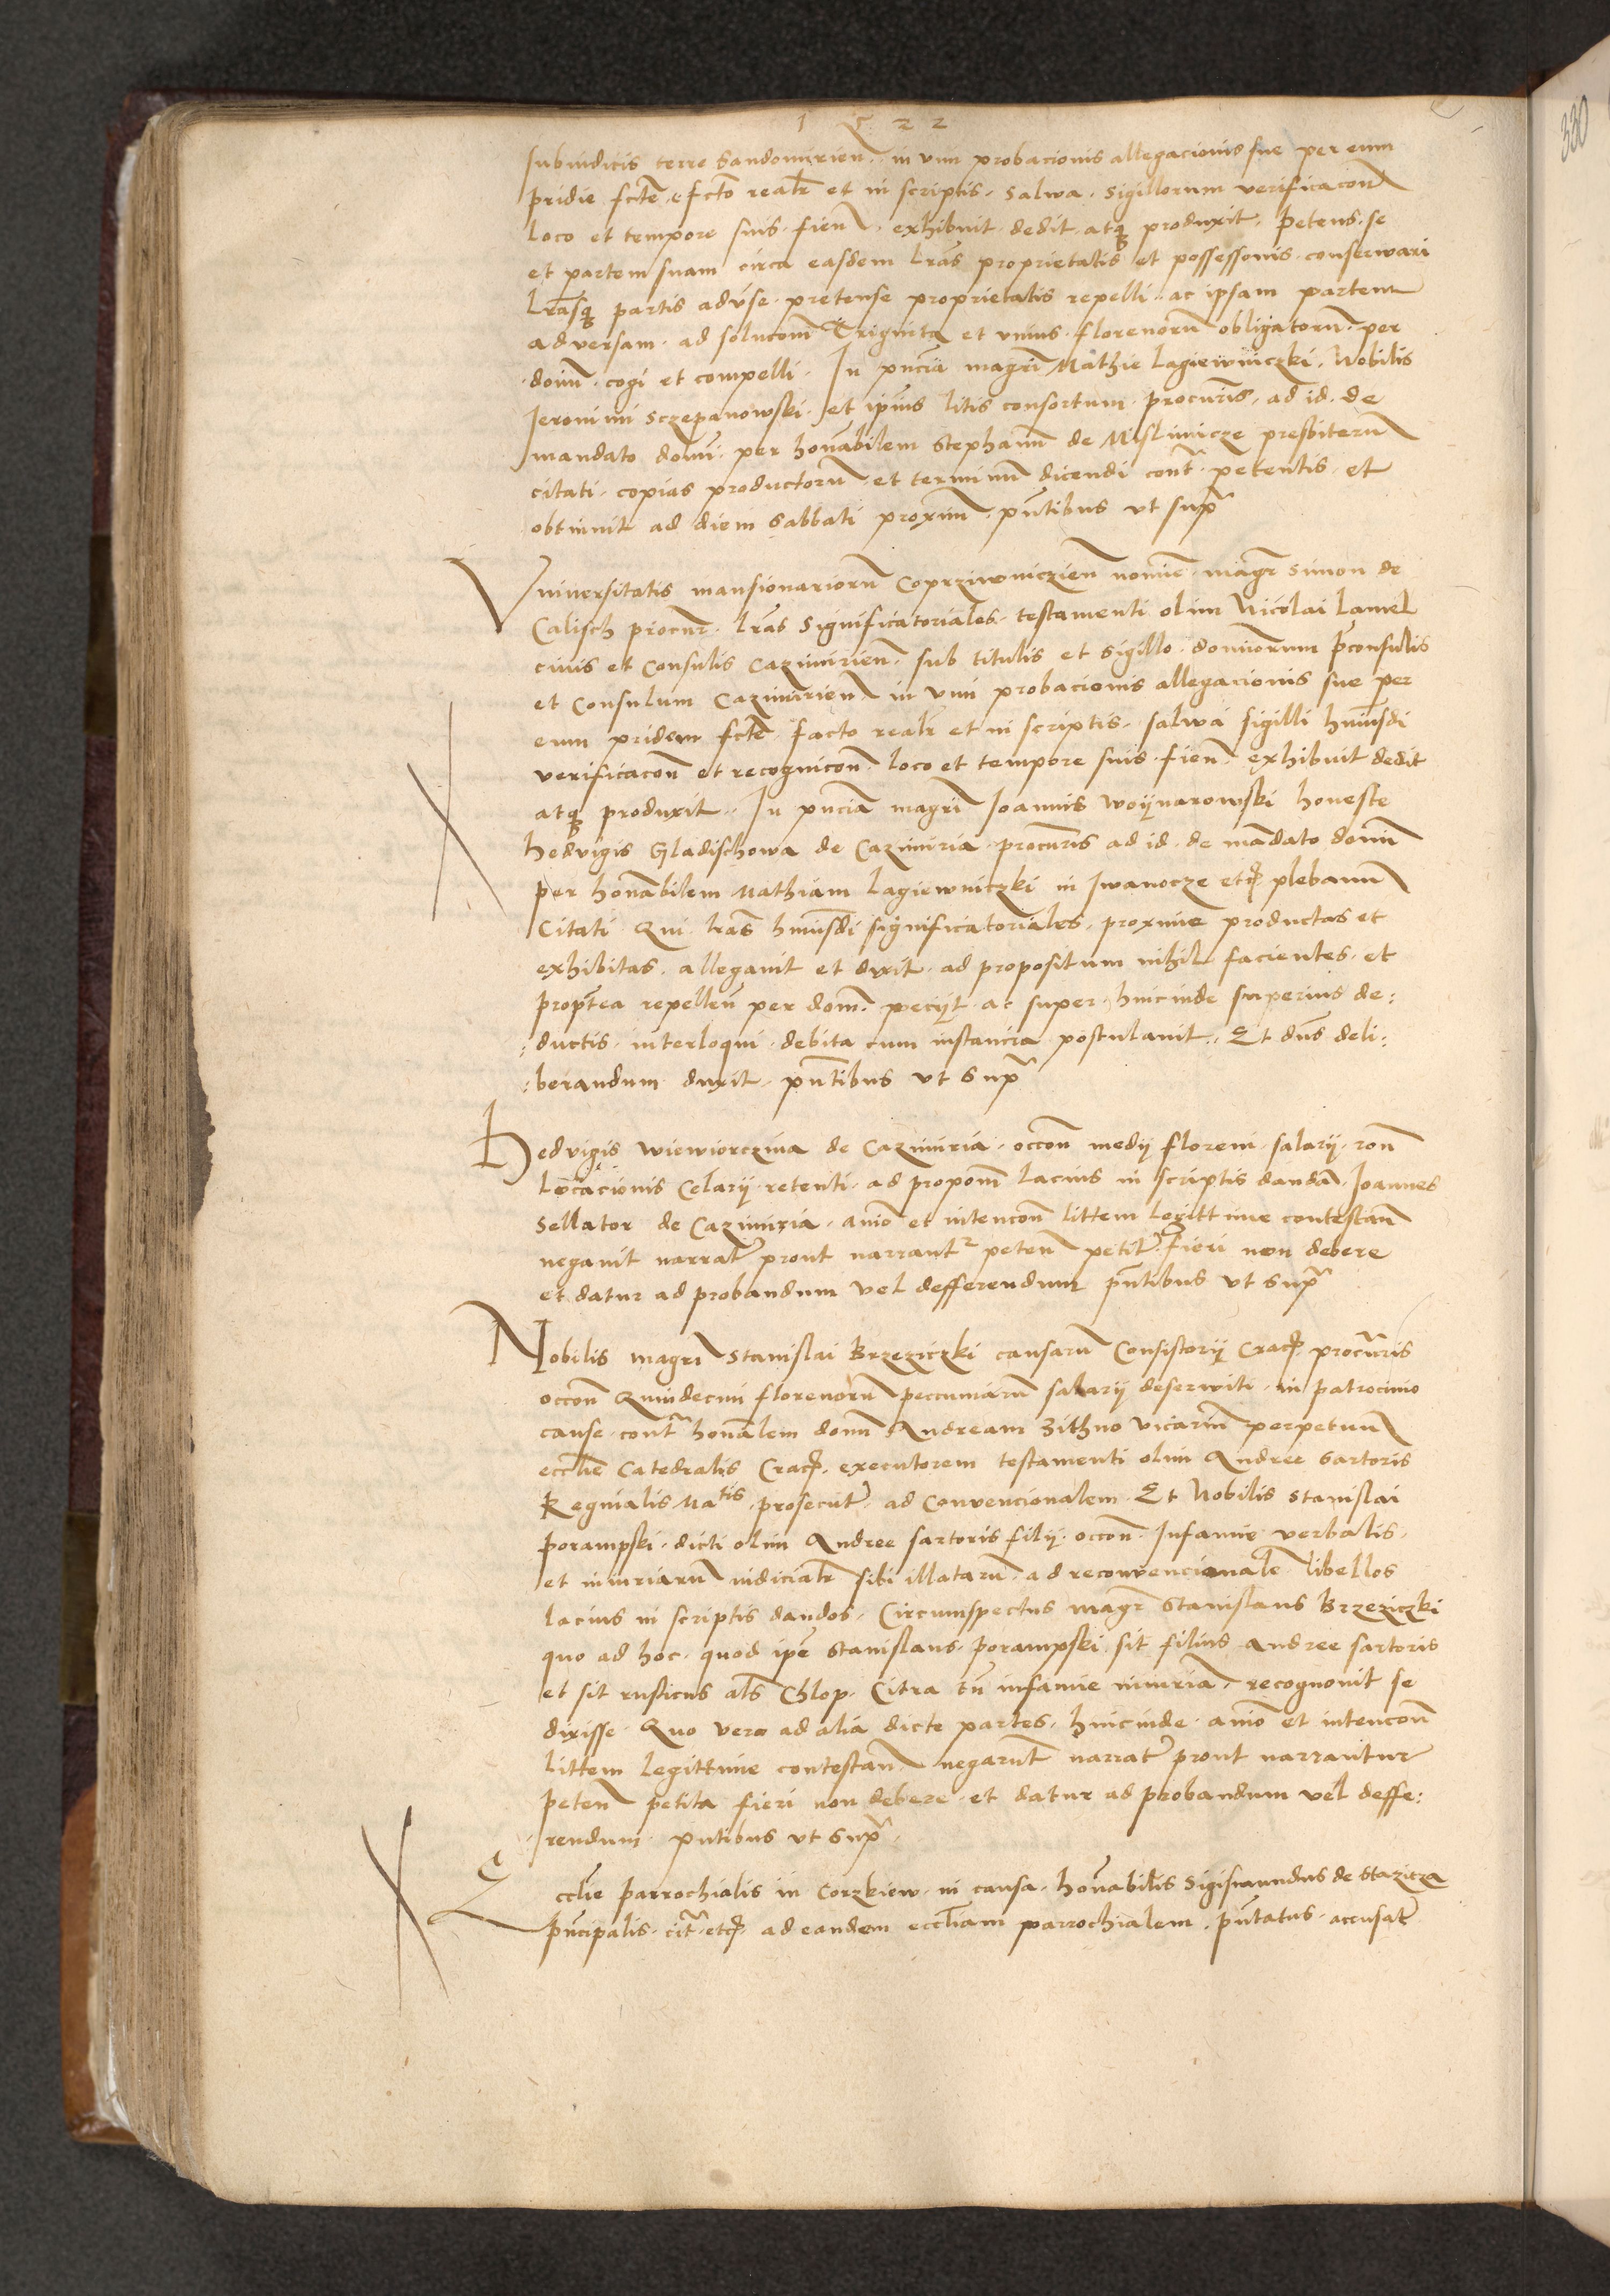 1522
subiudicis terre Sandomirien̄ in vim probacionis allegacionis sue per eum
pridie fcte efcto realr̄ et in scriptis. salwa. sigillorum verificacōn
loco et tempore suis. fien̄. exhibuit. dedit. atq̄ produxit. Petens. se
et partem suam circa easdem Lrās proprietatis et possessionis conserwari
Lrāsq̄ partis advse. pretense proprietatis repelli. ac ipsam partem
adversam. ad solucōm Triginta et vnius. florenorū obligatorū. per
dom̄. cogi et compelli. In pn̄cia magrī Mathie Lagiewniczki. Nobilis
Jeronimi Sczepanowski. et ipīus litis consortum. procurīs. ad id. de
mandato domi. per honābilem Stephanū de Mislimicze presbiterū
citati. copias productorū. et terminū dicendi contr̄. petentis. et
obtinuit ad diem Sabbati proxim̄. pn̄tibus vt supr̄
Vniuersitatis mansionariorū Coprziwniczien̄ nomīe. magr̄ Simon de
Calisch procur̄. Lrās Significatoriales. testamenti olim Nicolai Lamel
ciuis et Consulis Cazimirien̄. sub titulis et sigillo. dominorum pconsulis
et Consulum Cazimirien̄. in vim probacionis allegacionis sue per
eum pridem fcte. facto realr̄ et in scriptis. salwa sigilli hm̄sdi
verificacōn et recognicōn. loco et tempore suis. fien̄. exhibuit dedit
atq̄ produxit. In pn̄cia magrī Joannis Woÿnarowski honeste
Hedvigis Gladischowa de Cazimiria. procurīs ad id. de mādato domī
per honābilem Mathiam Lagiewniczki in Jwanocze etc plebanū
Citati Qui lrās hm̄sdi significatoriales. proxime productas et
exhibitas. allegauit et dixit. ad propositum nihil facientes. et
proptea repellen̄ per dom̄. peciit. ac super. hincinde superius de:
:ductis. interloqui. debita cum instancia postulauit. Et dn̄s deli:
:berandum duxit. pn̄tibus vt supr̄
Hedvigis Wiewiorczina de Cazimiria. occōn medij floreni. salarij. rōn
Locacionis Celarij. retenti. ad propom̄ Lacius in scriptis dandā. Joannes
Sellator de Cazimiria. animo et intencōn littem Legittime contestan̄
negauit narratr̄ prout narrantr̄ peten̄ petit. Fieri non debere
et datur ad probandum vel defferendum pn̄tibus vt supr̄
Nobilis magrī Stanislai Brzeziczki causarū Consistorij Crac. procurīs
occōn Quindecim florenorū peccuniarū salarij deserwiti. in patrocinio
cause. contr̄ honālem dom̄ Andream Zithno vicariū perpetuū
ecclīe Catedralis Crac. executorem testamenti olim Andree Sartoris
Reginalis Matis. prosecutr̄. ad Convencionalem. Et Nobilis Stanislai
Porampski. dicti olim Andree sartoris filij. occōn. Infamie verbalis.
et iniuriarū iudicialr̄ sibi illatarū. ad reconvencionalē libellos
lacius in scriptis dandos. Circumspectus magr̄ Stanislaus Brzeziczki
quo ad hoc. quod ipē Stanislaus. Porampski. sit filius Andree sartoris
et sit rusticus als̄ Chlop. Citra tn̄ infamie iniuriā. recognouit se
dixisse. Quo vero ad alia dicte partes. hincinde. animo et intencōn
littem legittime contestan̄. negarūt narratr̄ prout narrantur
Peten̄ petita fieri non debere. et datur ad probandum vel deffe:
rendum. pn̄tibus vt supr̄.
Ecclīe parrochialis in Corzkiew. in causa. honābilis Sigismundus de Stazicza
Pn̄cipalis. citr̄. etc. ad eandem eccliam parrochialem. pn̄tatus. accusatr̄
330